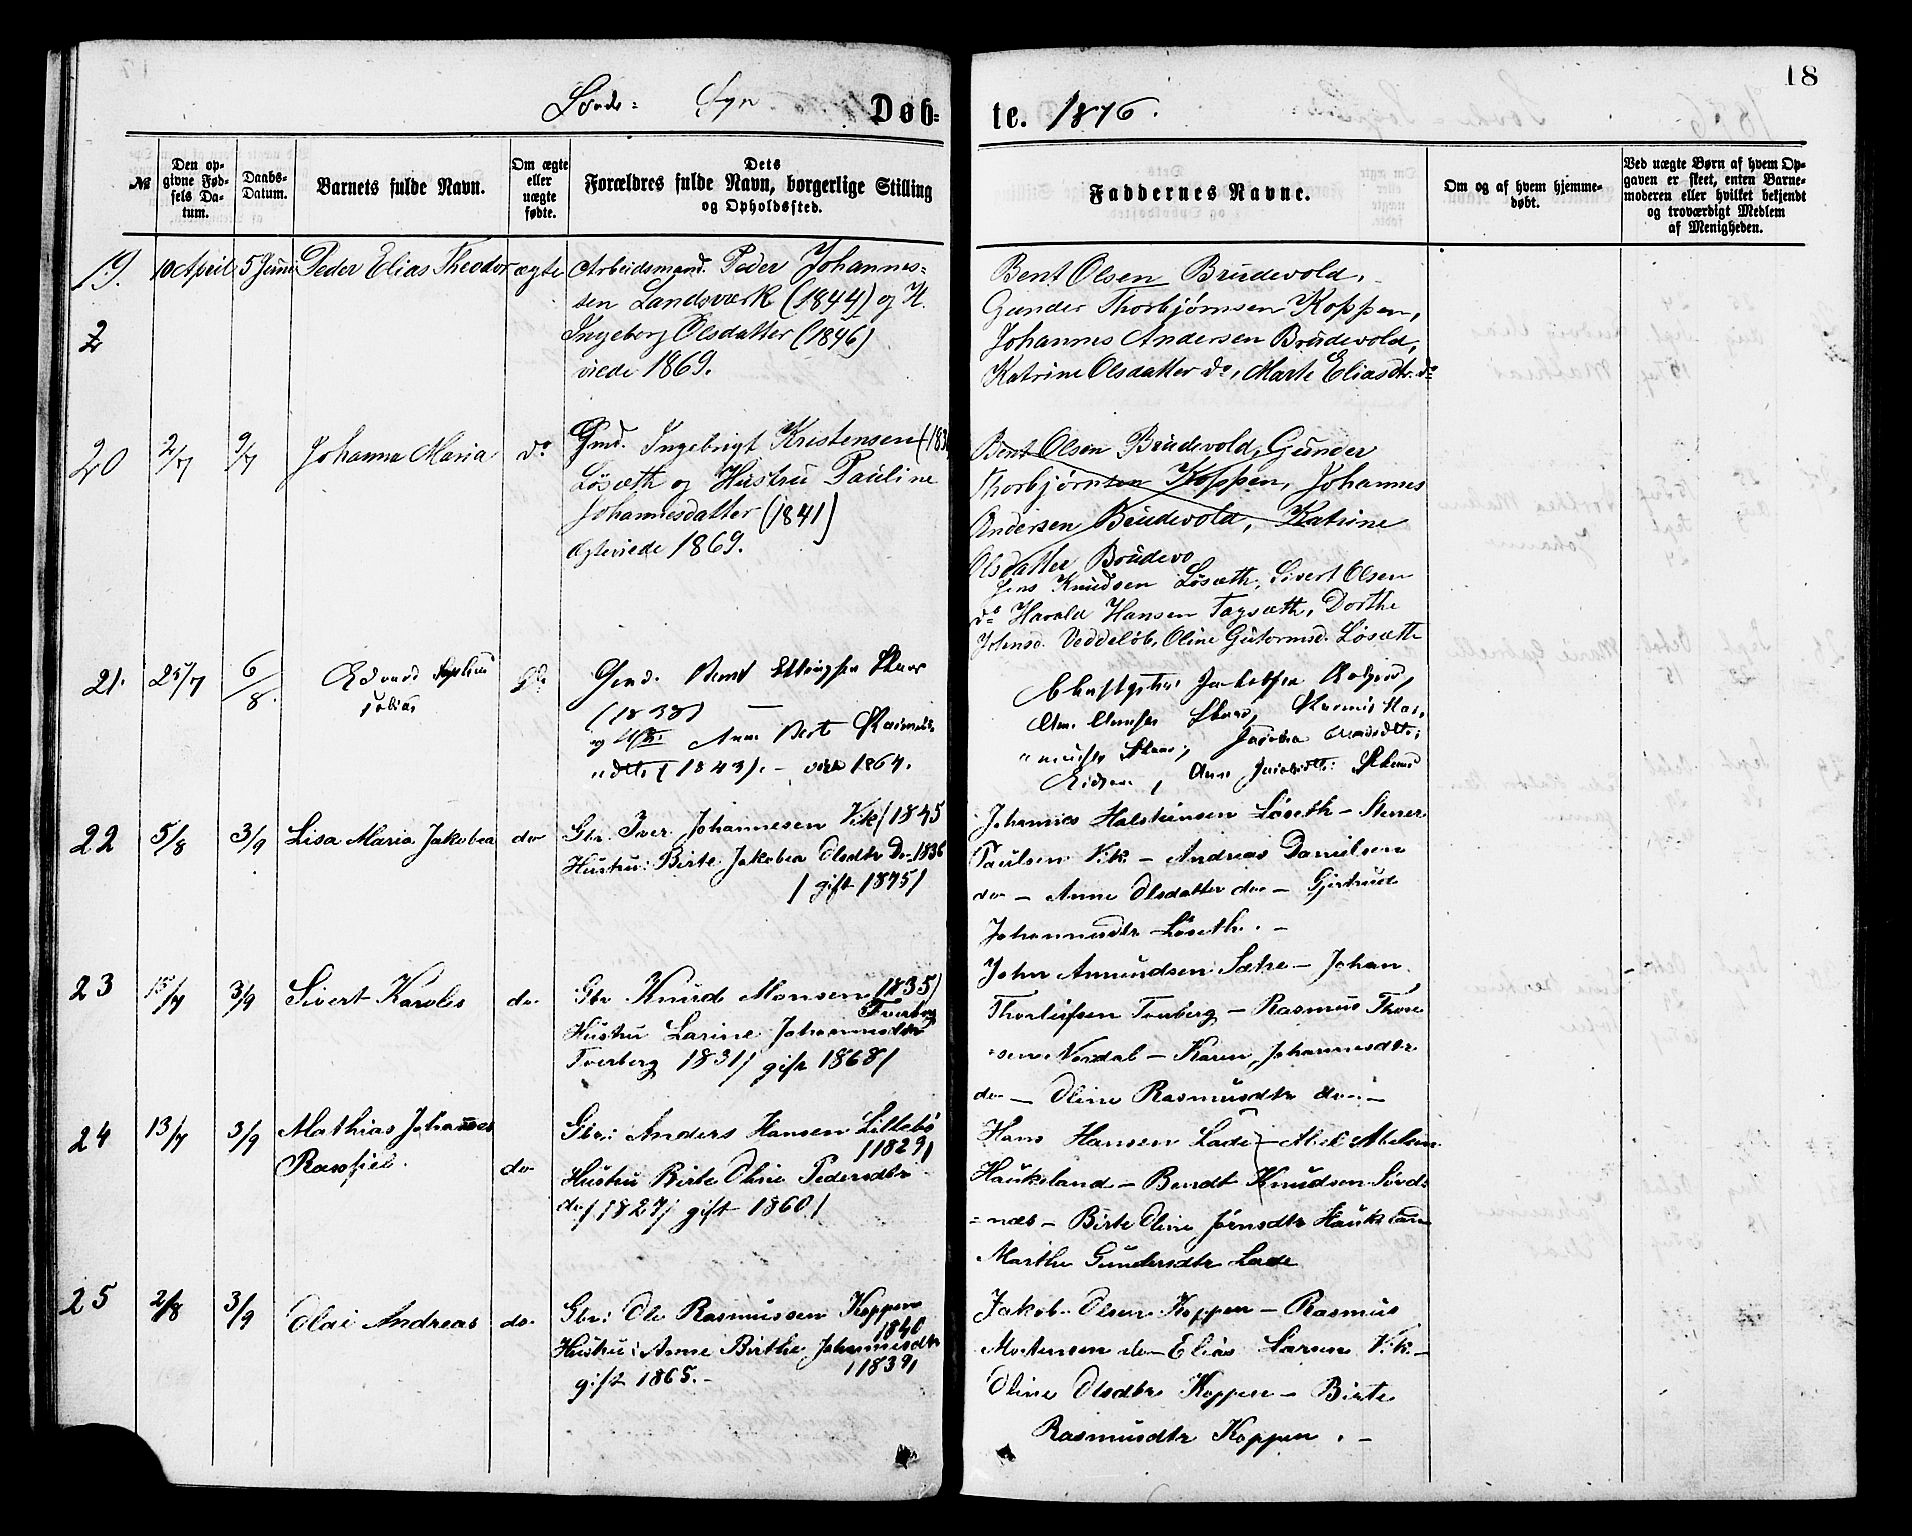 18
Døb=
te. 1876.
№
Den op-
givne Fød-
sels Da-
tum.
Daabs-
Datum.
Barnets fulde Navn.
Om ægte
eller
uægte
fødte.
Dets
Forældres fulde Navn, borgerlige Stilling
og Opholdssted.
Faddernes Navne.
Om og af hvem hjemme-
døbt.
Ved uægte Børn af hvem Op-
gaven er skeet, enten Barne-
moderen eller hvilket bekjendt
og troværdigt Medlem
af Menigheden.
19.
10 April
5 Juni
Peder Elias Theodor
ægte
Arbeidsmand. Peder Johannes-
sen Landsværk (1844) og H.
Ingeborg Olsdatter (1846)
viede 1869.
Bent Olsen Brudevold,
Gunder Thorbjørnsen Koppen,
Johannes Andersen Brudevold,
Katrine Olsdatter do, Marte Eliasdtr. do
2
20
2/7
9/7
Johanna Maria
do
Gmd. Ingebrigt Kristensen (183
Løsæth og Hustru Pauline
Johannesdatter (1841)
Ægteviede 1869.
Bent Olsen Brudevold, Gunder
Thorbjørnsen Koppen, Johannes
Andersen Brudevold, Katrine
Olsdatter Brudevo
Jens Knudsen Løsæth, Sivert Olsen
do Harald Hansen Tagsæth, Dorthe
Johnsd. Veddeløb, Oline Gutormsd. Løsæth
21.
25/7
6/8.
Edvard Sophus
Tobias
Gmd. Bernt
(1838)
og Anne Berte
(1843). - viede 1864.
Jakobsen
22
5/8
3/9
Lisa Maria Jakobea
do
Gbr. Iver Johannesen Vik (1845
Hustru: Birte Jakobea Olsdtr Do. 1836
/ gift 1875/
Johannes Halsteinsen Løseth - Stener
Paulsen Vik - Andreas Danielsen
do - Anne Olsdatter do - Gjertrud
Johannesdtr Løseth. -
23
15/7
3/9
Sivert Karolis
do.
Gbr Knud Monsen 1835/
Tverberg
Hustru Larine Johannesdtr
Tverberg 1831/ gift 1868/
John Amundsen Sætre - Johan
Thorleifsen Tverberg - Rasmus Thore
sen Nordal - Karen Johannesdtr
do - Oline Rasmusdtr do. -
24
13/7
3/9
Mathias Johannes
do
Gbr: Anders Hansen Lillebø
/1829/
Hustru Birte Oline Pedersdtr
do/1827/ gift 1860/
Hans Hansen Lade - Abel Abelsen
Haukeland - Bendt Knudsen Søvd-
=nes - Birte Oline Jørnsdtr Haukeland
Marthe Gundersdtr Lade
25
2/8
3/9
Olai Andreas
do.
Gbr: Ole Rasmussen Koppen
1840
Hustru: Anne Birthe Johannesdtr
/1839/
gift 1865. -
Jakob Olsen Koppen - Rasmus
Mortensen do - Elias Larsen Vik. -
Oline Olsdtr Koppen - Birte
Rasmusdtr Koppen. -